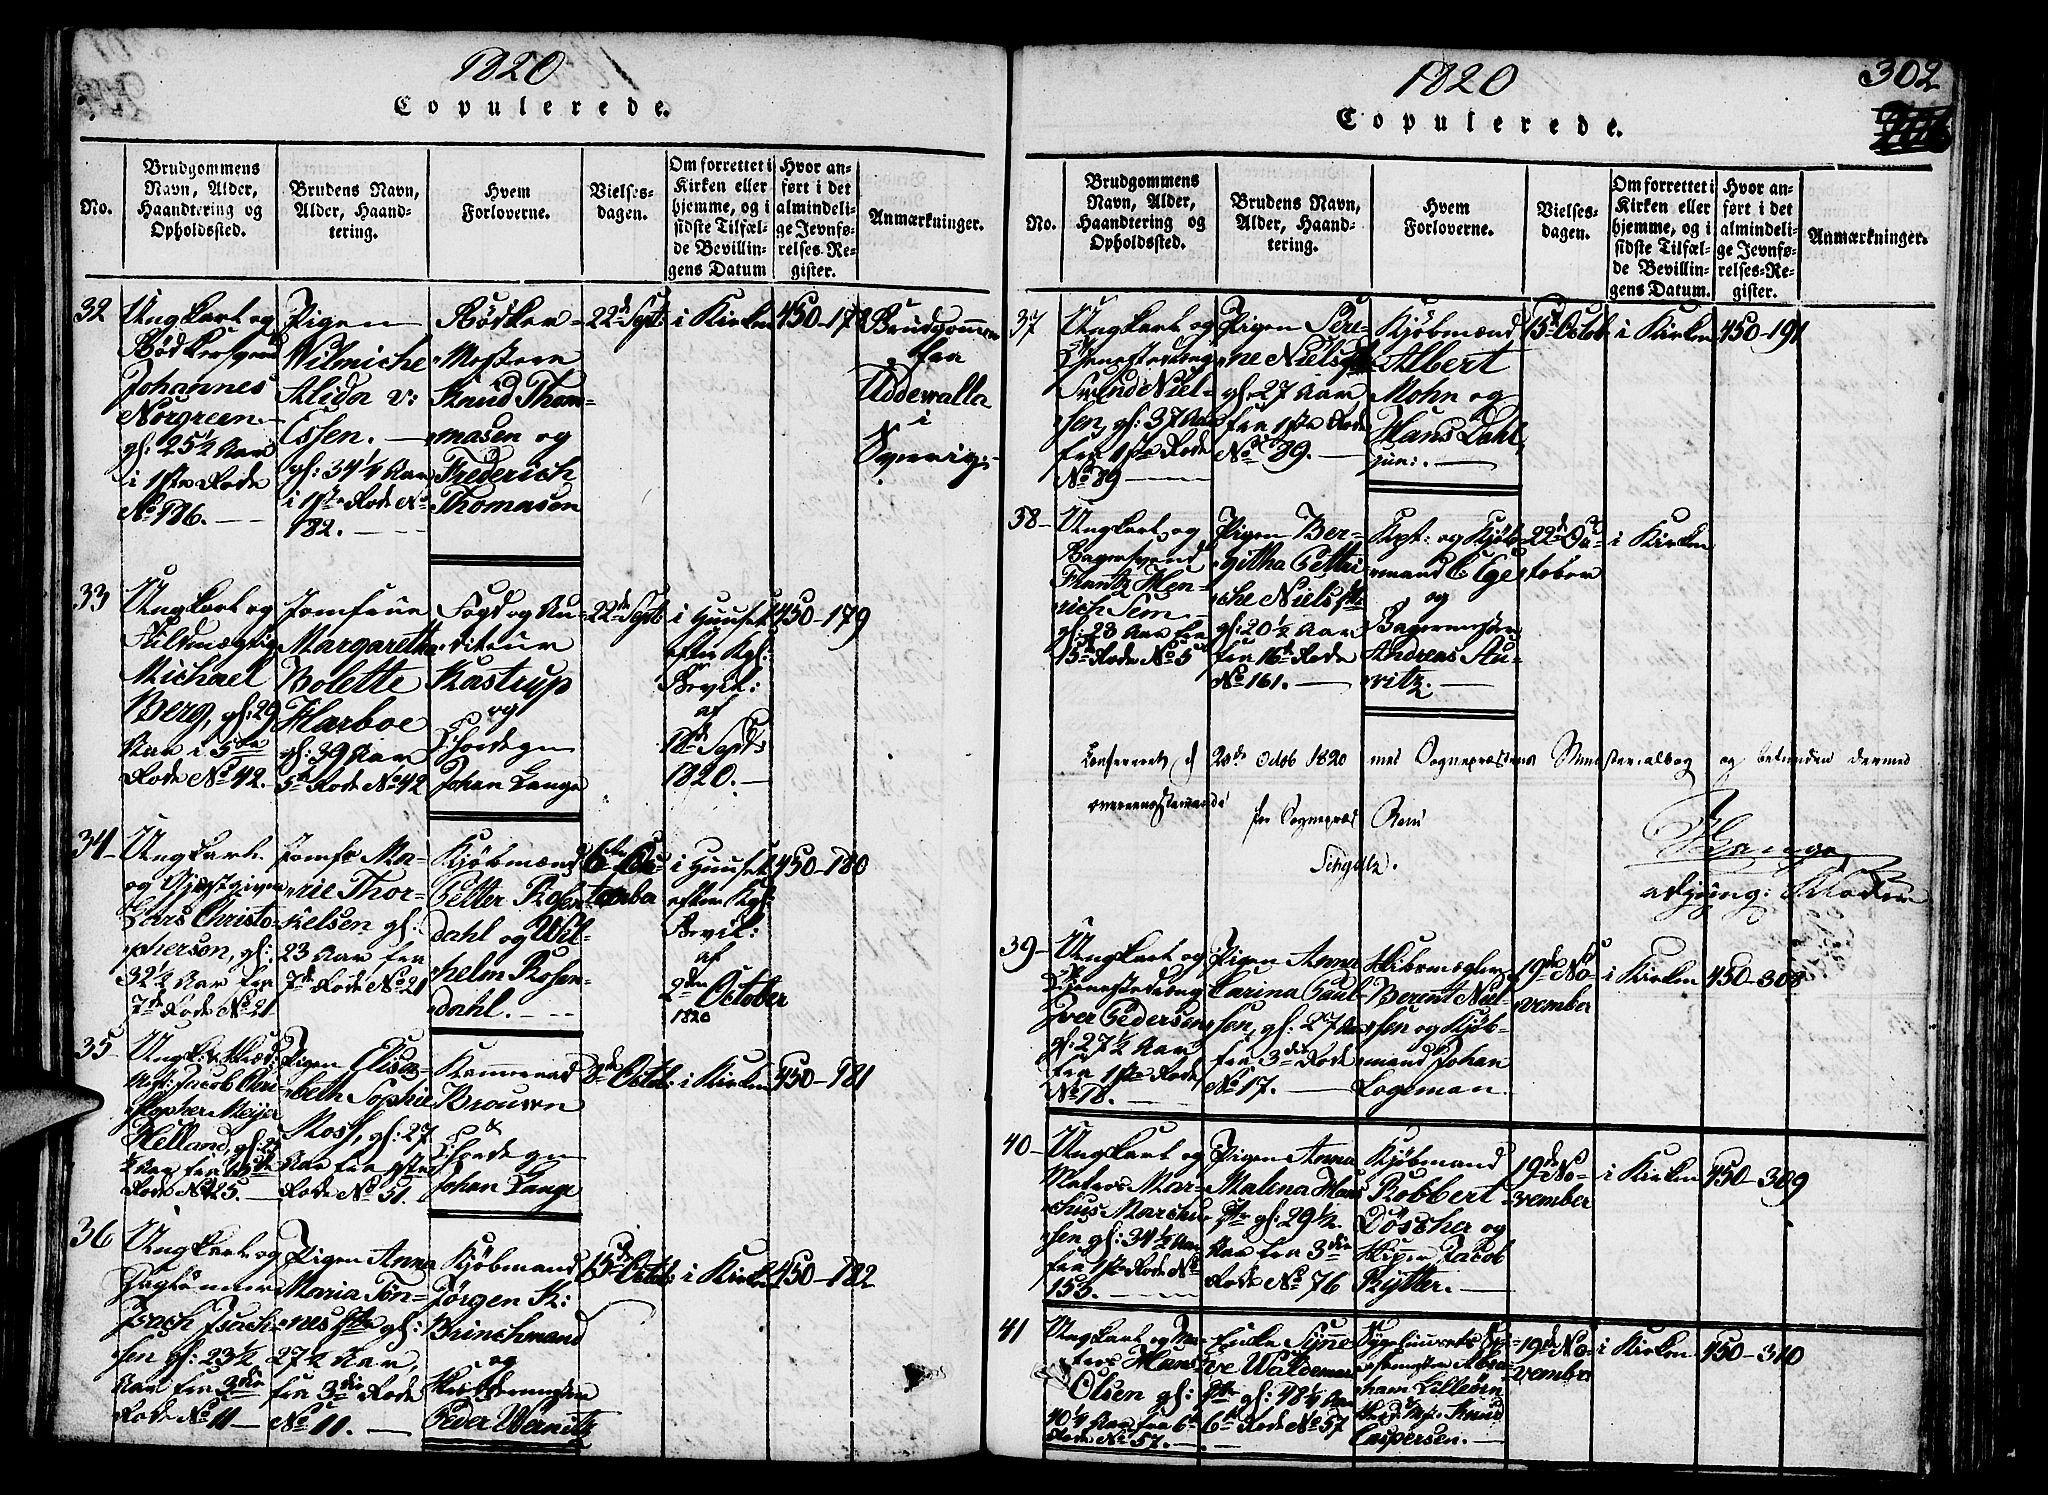 1820
Copulerede.
No.
Brudgommens
Navn, Alder,
Haandtering og
Opholdssted.
Brudens Navn,
Alder, Haand-
tering.
Hvem
Forloverne.
Vielses-
dagen.
Om forrettet i
Kirken eller
hjemme, og i
sidste Tilfæl-
de Bevillin-
gens Datum
Hvor an-
ført i det
almindeli-
ge Jevnfø-
relses-Re-
gister.
Anmærkninger.
32
Ungkarl og
Bødkersvend
Johannes
Norgreen
gl: 25½ Aar
i 1ste Rode
No 186.
Pigen
Wilmiche
Alida v:
Essen.
gl: 34¼ Aar
i 1ste Rode No
182.
Bødker-
Mestern
Knud Thom-
masen og
Frederich
Thomasen
22de Septb
i Kirken
450-178
Brudgommen
fra
Uddewalla
i
Sverrig.
33
Ungkarl og
Michael
Berg, gl: 29
Aar i 5te
Rode No 42.
Jomfrue
Margaretha
Bolette
Harboe
gl: 39 Aar
5te Rode No 42
Fogd og Au-
diteur
Kastrup
og
Johan Lange
22de Septb
i Huuset
efter Kgl:
Bevil:
af
Septb
1820.
450-179
34
Ungkarl
og Gjestgiver
Lars Christo-
pherson, gl:
32½ Aar fra
7de Rode No 21
Jomfr Ma-
rie Thor-
kelsen gl:
23 Aar fra
7de Rode No 21
Kjøbmænd
Petter Rosen
dahl og Wil-
helm Rosen-
dahl.
6te Oc-
tember
i Huuset
efter Kgl:
Bevil:
af
2den October
1820
450-180
35
Jacob Chri-
stopher Meijer
Helland, gl: 29
½ Aar fra
Rode No 25.
Pigen Elisa-
beth Sophie
Ross, gl: 27
Aar fra
Rode No 51.
Kammeraad
Brouwn
&
Johan Lange
8de Octob
i Kirken
450-181
36
Ungkarl og
Isach Isach-
sen gl: 23½
Aar fra 3die
Rode No 11
Pigen Anna
Maria Tøn-
nes gl:
27½ Aar,
fra 3die Rode
No 11.
Kjøbmand
Jørgen K:
Brinchmand
og
Peder Wernitz
15de Octob
i Kirken
450-182
1820
302
Copulerede.
No.
Brudgommens
Navn, Alder,
Haandtering og
Opholdssted.
Brudens Navn,
Alder, Haand-
tering.
Hvem
Forloverne.
Vielses-
dagen.
Om forrettet i
Kirken eller
hjemme, og i
sidste Tilfæl-
de Bevillin-
gens Datum.
Hvor an-
ført i det
almindeli-
ge Jevnfø-
relses-Re-
gister.
Anmærkninger.
37
Ungkarl og
Svend Niel-
sen, gl: 37 Aar
fra 1ste Rode
No 89
Pigen Sere-
ne Niels
gl: 27 Aar
fra 1ste Rode
No 89.
Kjøbmænd
Albert
Mohn og
Hans Dahl
jun:.
15de Octob
i Kirken
450-191
38
Ungkarl og
Bagersvend
Frantz Hen-
rich Sem
gl: 28 Aar fra
15de Rode No 5
Pigen Ber-
githa Pettri-
che Niels
gl: 20½ Aar
fra 16de Rode
No 161.
Kpt: og Kjøb-
mand C Eges
og
Bagermester
Andreas Au-
ritz.
22de Oc-
tober
i Kirken
Confereret d 28de Octob 1820 med Sognepræstens Ministerialbog og befunden dermed
overeensstemmende
for Sognepræst Rein
adjung:
39
Ungkarl og
Iver Pedersen
gl: 27½ Aar
fra 1ste Rode
No 18.
Pigen Anna
Carina Paul-
sen, gl: 27 Aar
fra 3die Rode
No 17.
Skibsmægler
Berent Niel-
sen og Kjøb-
mand Johan
Logeman.
19de No-
vember
i Kirken
450-308
40
Ungkarl og
Matros Mar-
chus Marchu-
sen gl: 34½ Aar
fra 1ste Rode No
153.
Pigen Anna
Malena Hans
gl: 29½
Aar fra 3die
Rode No 76
Kjøbmand
Robbert
Døscher og
Skipper Jacob
Rytter.
19de No-
vember
i Kirken
450-309
41
Ungkarl og Ma-
tros Hans
Olsen gl:
40¼ Aar fra 6te
Rode No 57.
Enke Synne-
ve Waldemars
gl: 48¼ Aar
6te Rode No 57
Abra-
ham Lilleøen
Knud
Caspersen.
19de No-
vember
i Kirken
450-310